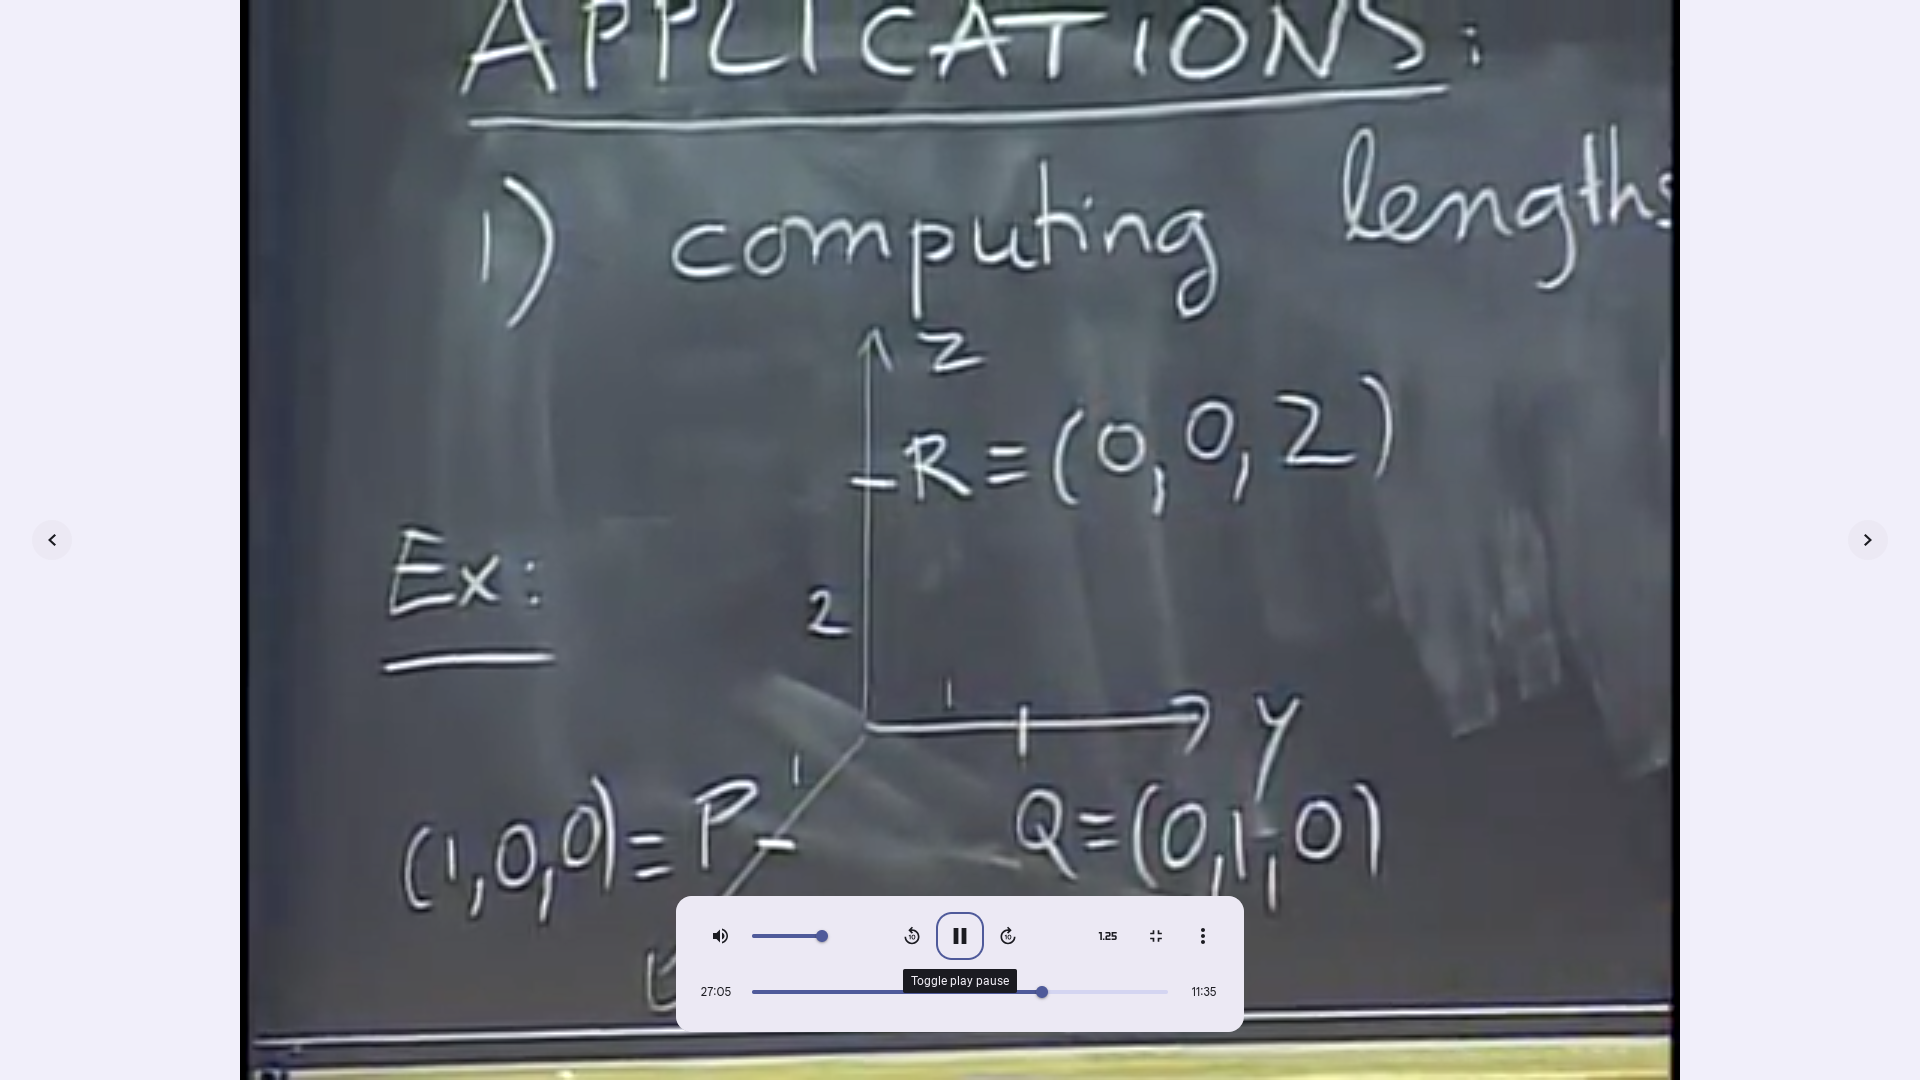 APPLICATIONS:
1) computing lengths
Z
R ≡ (0,0,2)
Ex:
2
1
Y
1
(1,0,0) ≡ P
Q ≡ (0,1,0)
10
10
1.25
Toggle play pause
27:05
11:35